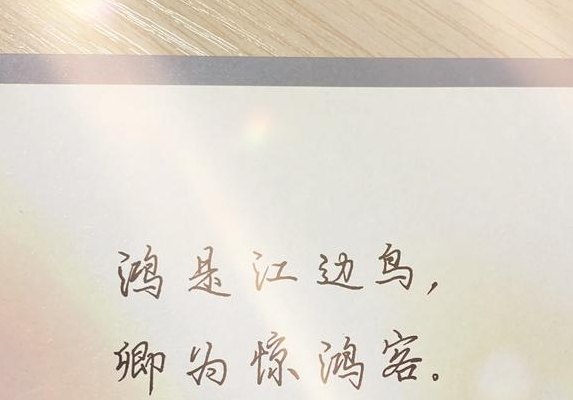 鸿是江边鸟，
卿为惊鸿客。